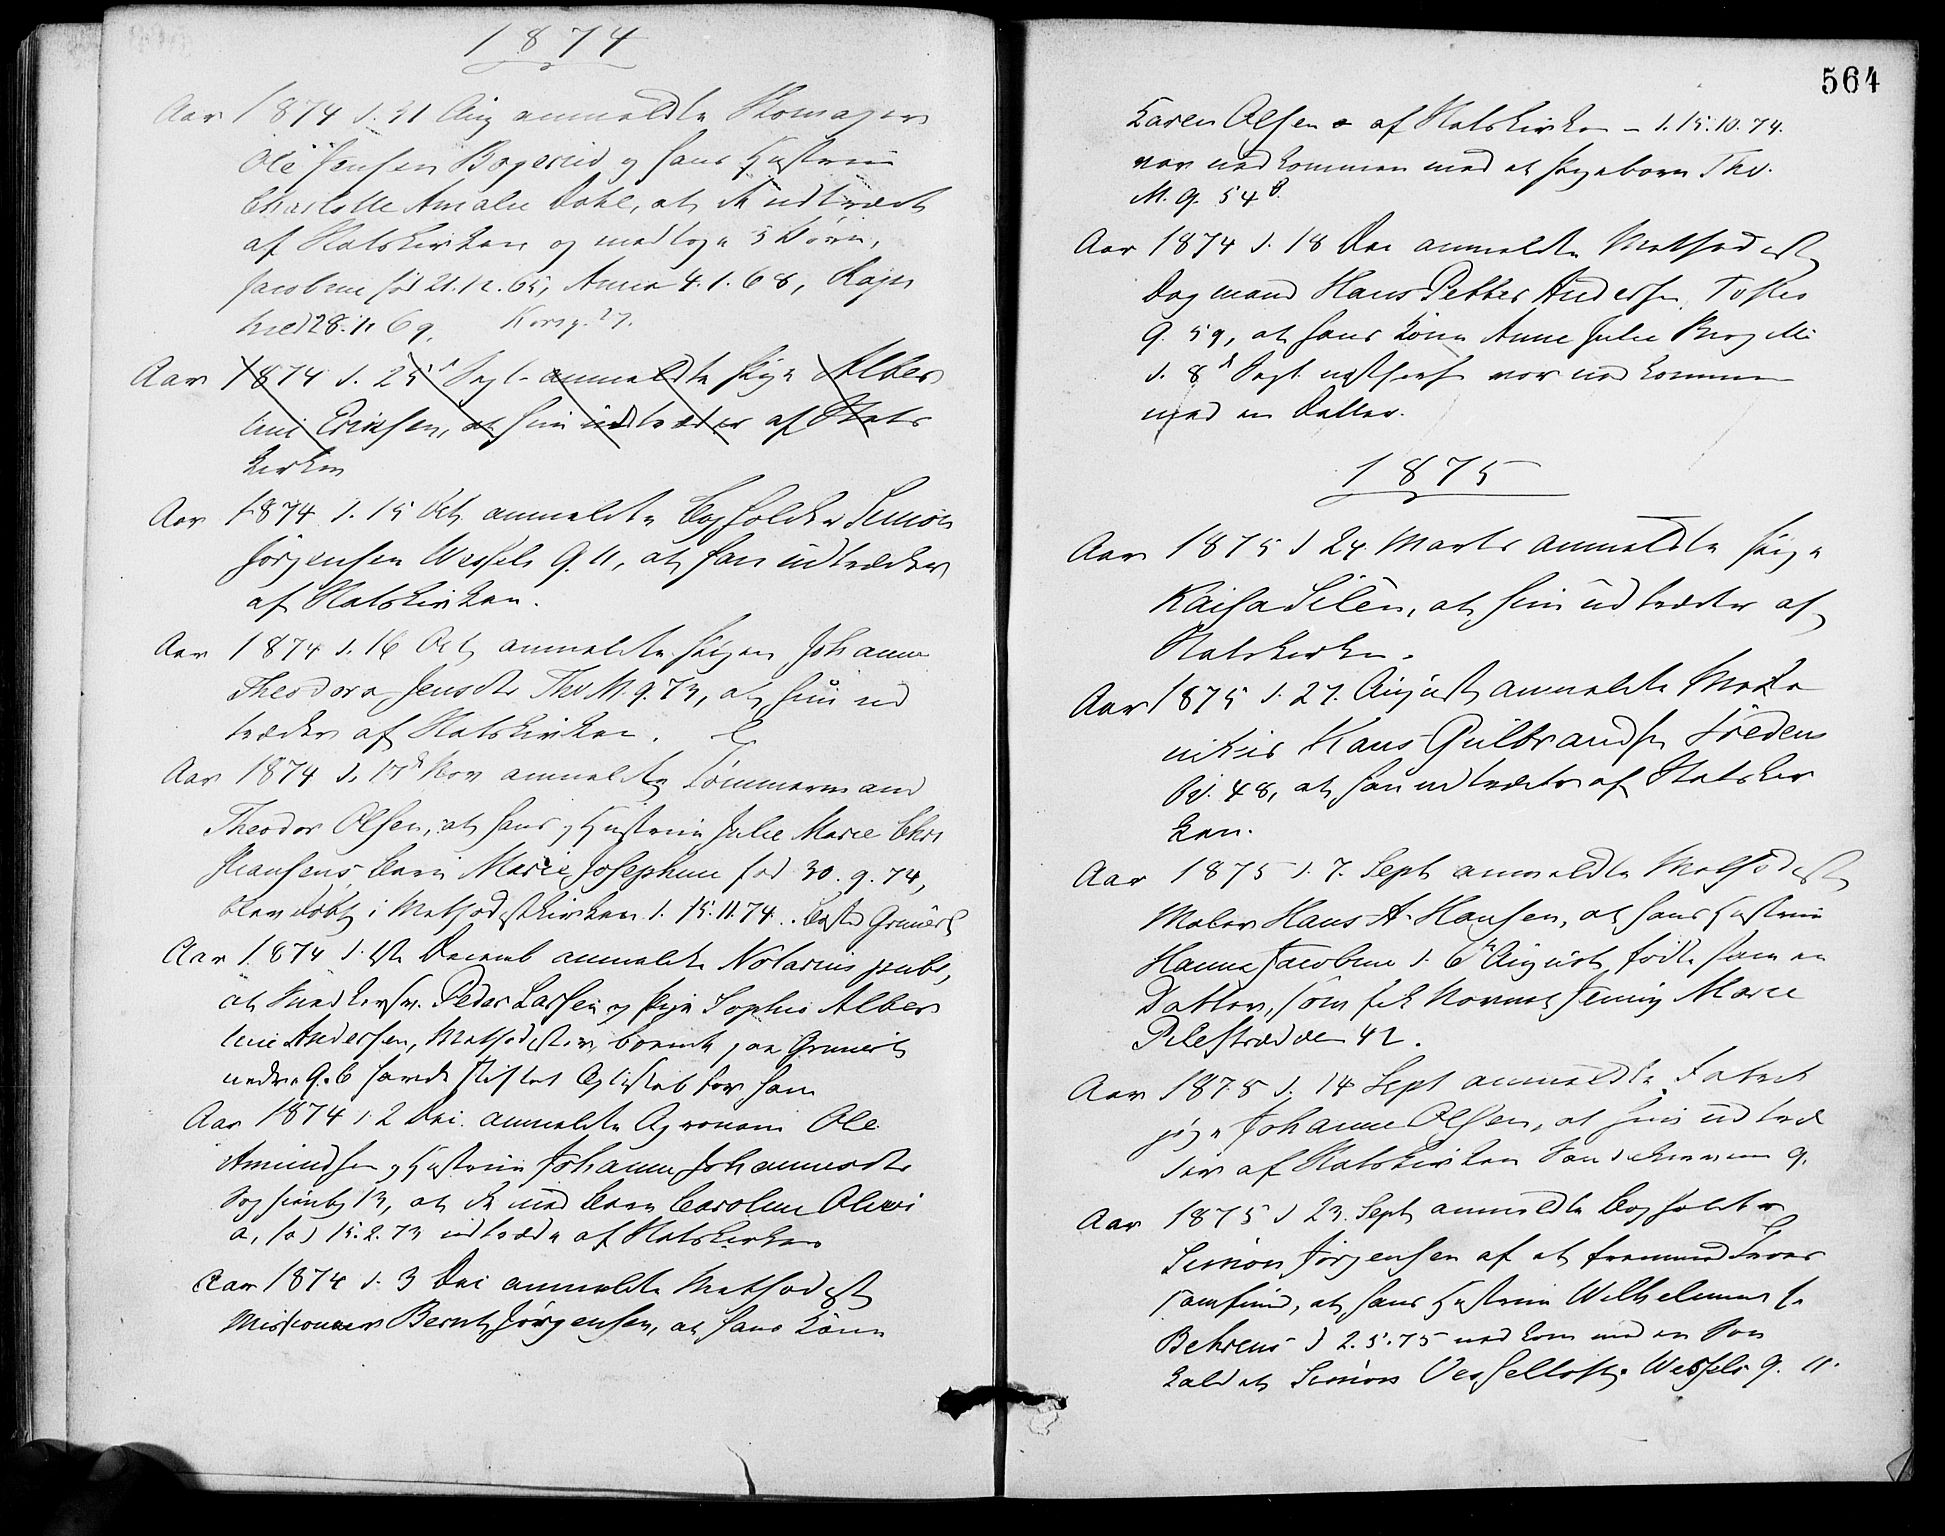 1874
Aar 1874 d. 31 Aug anmeldte Skomager
Ole Jensen Bøgerud og hans Hustru
Charlotte Amalie Dahl, at de udtræde
af Statskirken og medtoge 3 Børn,
Jacobine fød 21.12.65, Anna 4.1.68, Ragn
hild 28.11.69. Korsg. 27.
Aar 1874 d. 25 Sept. anmeldte Pige Alber
tine Eriksen, at hun udtræder af Stats
kirken
Aar 1874 d. 15 Oct. anmeldte Bogholder Simon
Jörgensen Wessels G. 11, at han udtræder
af Statskirken.
Aar 1874 d. 16 Oct. anmeldte Pigen Johanne
Theodora Jensdtr Thv. M. g. 73, at hun ud
træder af Statskirken.
Aar 1874 d. 17 Nov anmeldte Tömmermand
Theodor Olsen, at hans og Hustru Julie Marie Chri
stiansens Barn Marie Josephine fød 30.9.74,
blev døbt i Methodistkirken d. 15.11.74.
Aar 1874 d. Decemb anmeldte Notarius publ,
at Snedkersv. Peder Larsen og Pige Sophie Alber
tine Andersen, Methodister, boende paa Grüners
nedre G. 6 havde stiftet Egteskab for ham
Aar 1874 d. 2 Dec. anmeldte Agronom Ole
Amundsen og Hustru Johanne Johannesdtr
13, at de med Barn Caroline Olivi
a, fød 15.2.73 udtræde af Statskirken
Aar 1874 d. 3 Dec anmeldte Methodist
Missionær Bernt Jörgensen, at hans Kone
564
Karen Olsen af Statskirken d. 15.10.74.
var nedkommen med et Pigebarn Thv.
M. g. 54 b.
Aar 1874 d. 18 Dec anmeldte Methodist
Dagmand Hans Petter Andersen, Toftes
G. 59, at hans Kone Anne Julie
d. 8 Sept. var nedkommen
med en Datter.
1875
Aar 1875 d 24 Marts anmeldte Pige
Kaisa Silén, at hun udtræder af
Statskirken.
Aar 1875 d. 27. August anmeldte Meka
nikus Hans Gulbrandsen Fredens
48, at han udtræder af Statskir
ken.
Aar 1875 d. 7. Sept anmeldte Methodist
Maler Hans A. Hansen, at hans Hustru
Hanna Jacobine d. 6 August, fødte ham en
Datter, som fik Navnet Jenny Marie
Pilestrædet 42.
Aar 1875 d. 14 Sept anmeldte Fabrik
pige Johanne Olsen, at hun udtræ
der af Statskirken 9.
Aar 1875 d 23. Sept anmeldte Bogholder
Simon Jörgensen af et fremmed Troes
samfund, at hans Hustru Wilhelmine f.
Behrens d 2.5.75 nedkom med en Søn
kaldet Simon Wesseltoft. Wessels G. 11.